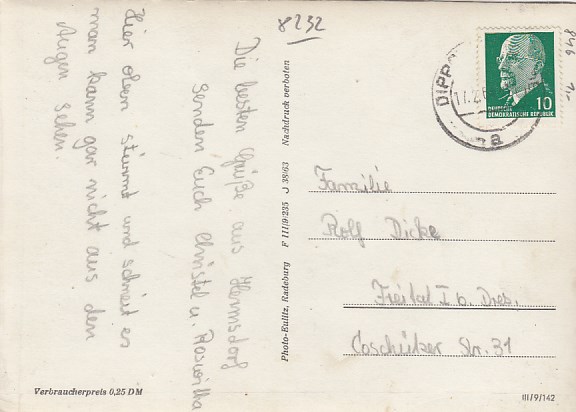 8232
846
Die besten Grüße aus Hermsdorf
senden Euch Christel u. Roswitha
Hier oben stürmt und schneit es
man kann gar nicht aus den
Augen sehen.
Photo-Eulitz, Radeburg F III/9/235 J 38/63 Nachdruck verboten
DIPP
17.2.
a
10
DEUTSCHE
DEMOKRATISCHE REPUBLIK
Familie
Rolf Dicke
Freital I b. Dres.
Coschützer Str. 31
Verbraucherpreis 0,25 DM
III/9/142